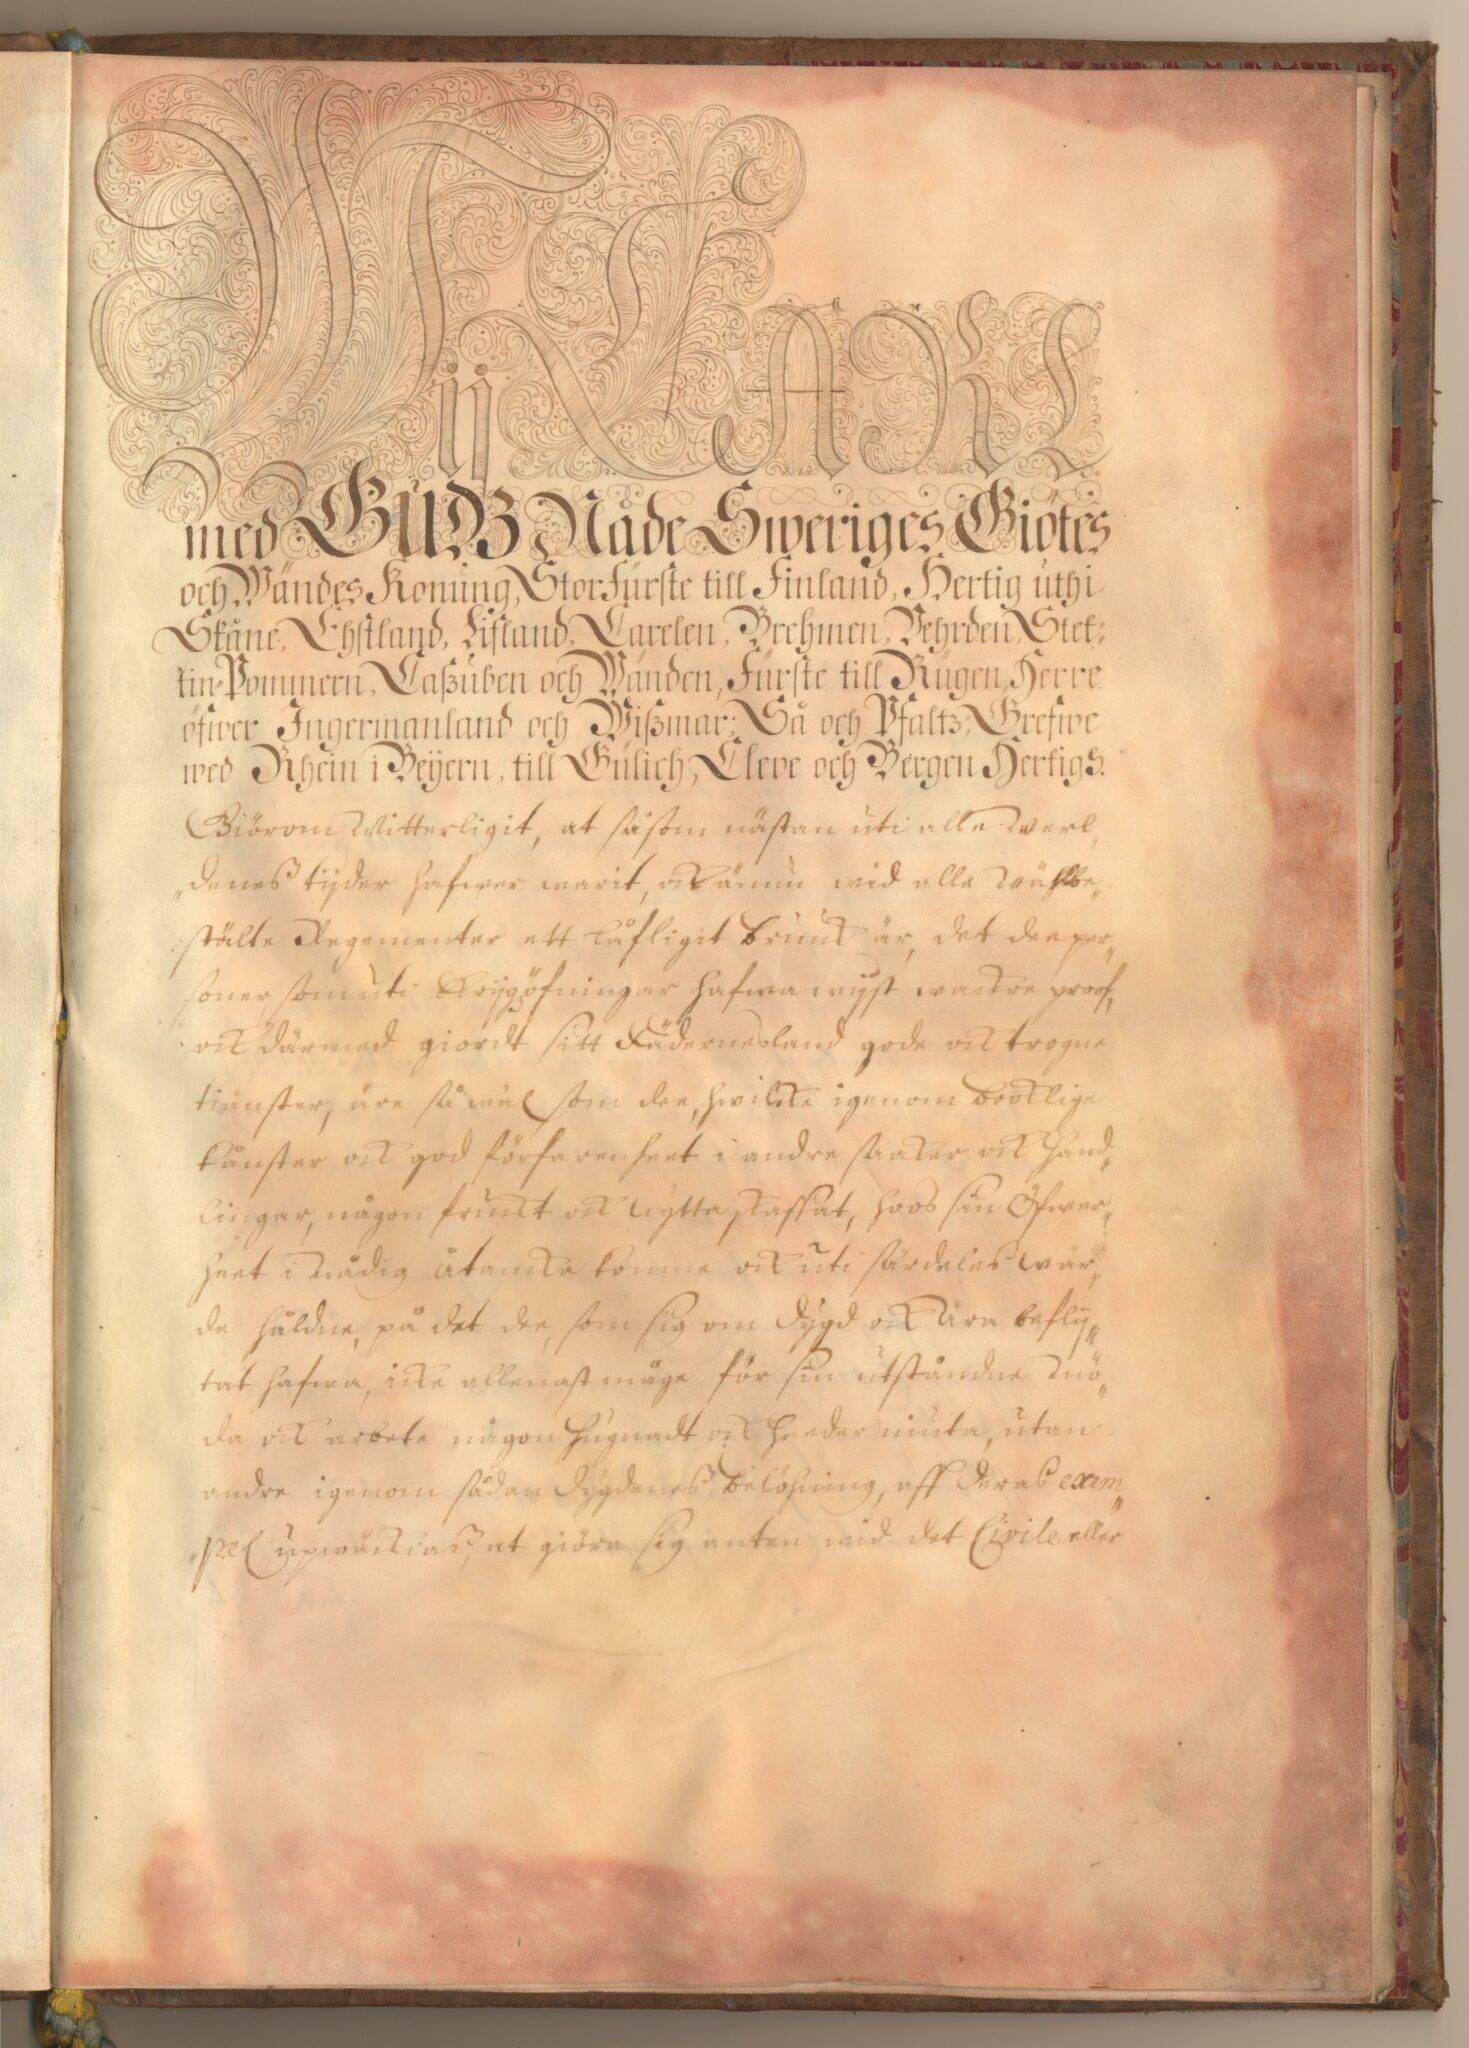 Wij CARL
med GUDZ Nåde Sweriges Giötes
och Wändes Konung, StorFurste till Finland, Hertig uthi
Skåne, Ehstland, Lifland, Carelen, Brehmen, Vehrden, Stet:
tin-Pommern, Caßuben och Wänden, Furste till Rügen, Herre
öfwer Ingermanland och Wißmar; Så och Pfaltz-Grefwe
wed Rhein i Beijern, till Gülich, Cleve och Bergen Hertig &.
Giörom Witterligit, at såsom nästan uti alle werl„
„denes tijder hafwer warit, ock ännu wid alle wählbe„
stälte Regementer ett låfligit bruuk är, det dee per„
soner, som uti Krijgzöfningar hafwa wijst wackre proof„
ock därmed giordt sitt Fädernesland gode ock trogne
tiänster, äre så wäl som dee, hwilcke igenom booklige
kånster ock god förfarenheet i andre saaker ock hand„
lingar, någon fruckt ock nytta skaffat, hoos sin Öfwer„
heet i nådig åtancka komme ock uti särdeles wär„
de håldne, på det dee, som sig om dygd ock ära beflij„
tat hafwa, icke allenast måge för sin utståndne mö„
da ock arbete någon hugnadt ock heeder niuta, utan
andre igenom sådan dygdenes belöhning, aff deras exem„
„pel upwäckias, at giöra sig anten wid det Civile eller